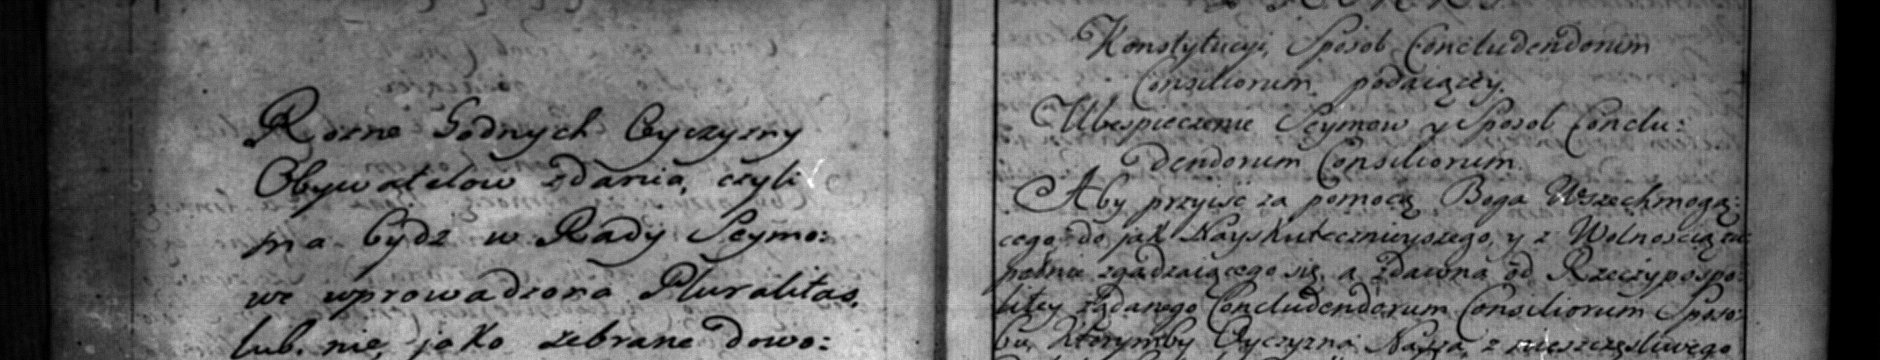 Rozne Godnych Oyczyzny
Obywatelow zdania, czyli
ma bydz w Rady Seymo:
we wprowadzona Pluralitas,
lub nie, jako zebrane dowo:
Konstytucyi, Sposob Concludendorum
Consiliorum podaiącey.
Ubespieczenie Seymow y Sposob Conclu:
dendorum Consiliorum.
Aby przyisc za pomocą Boga Wszechmogą:
cego do jak Nayskutecznieyszego, y z Wolnoscią zu
pełnie zgadzaiącego się, a zdawna od Rzeczypospo:
litey żądanego Concludendorum Consiliorum Sposo:
bu, ktorymby Oyczyzna Nasza, z nieszczęsliwego